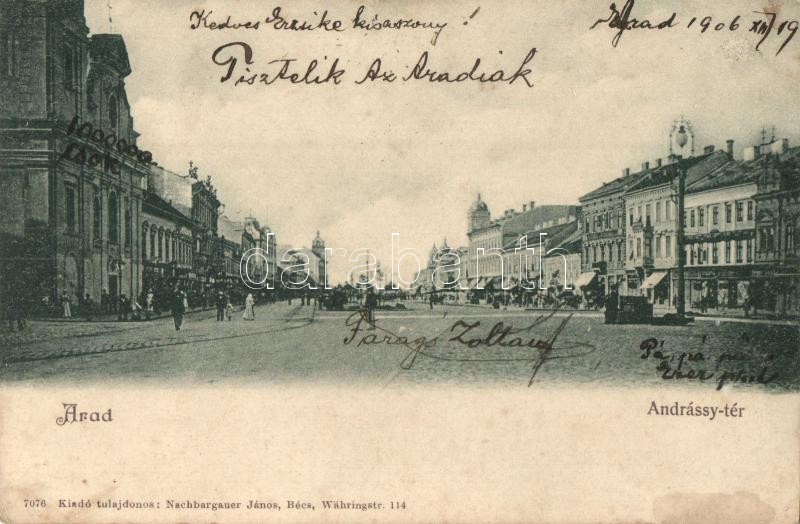 Kedves Erzsike kisaszony!
Arad 1906 XII/19
Tisztelik Az Aradiak
1000000
csók
darabanth
Faragó Zoltan
Pá, pá pá
Ezer puszi
Arad
Andrássy-tér
7076 Kiadó tulajdonos: Nachbargauer János, Bécs, Währingstr. 114